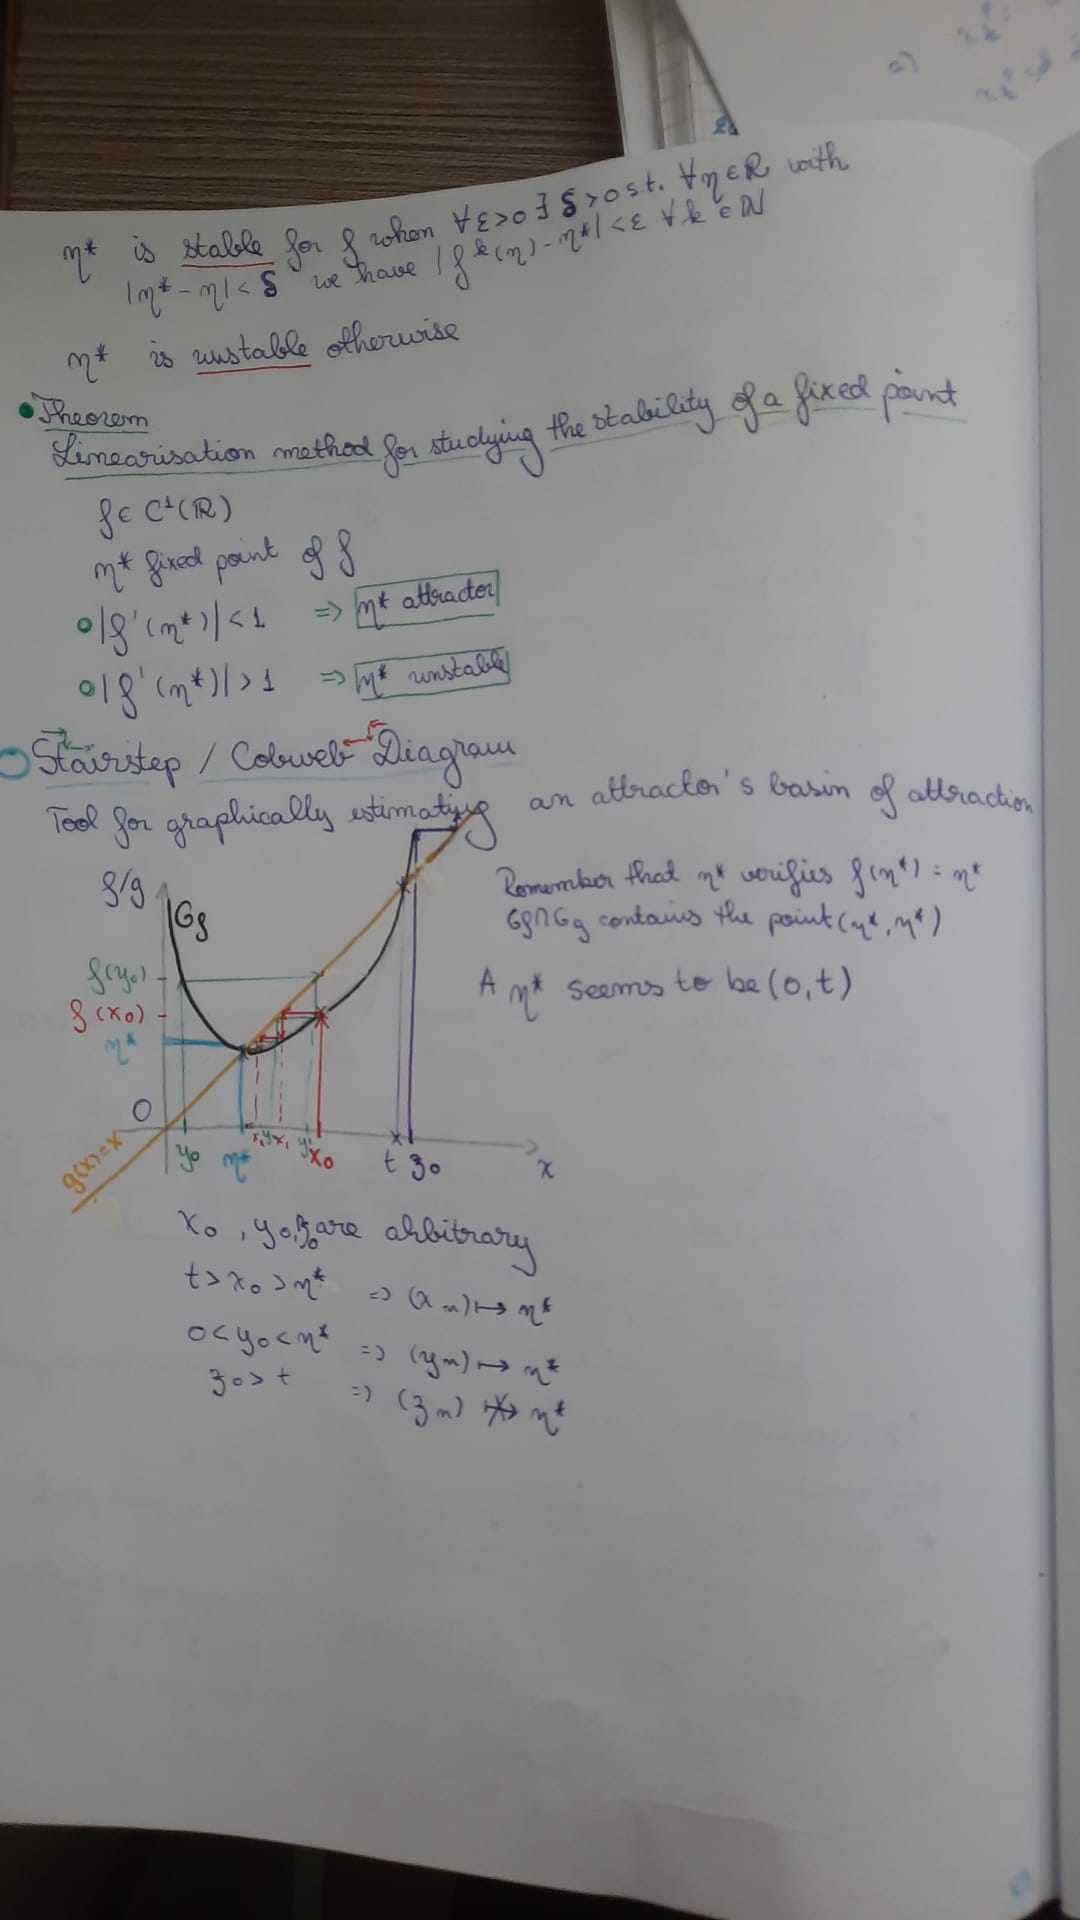 η* is stable for f when ∀ε>0 ∃ δ>0 s.t. ∀η∈ℝ with
|η* - η| < δ we have |f^k(η) - η*| < ε ∀k∈ℕ
η* is unstable otherwise
Theorem
Linearisation method for studying the stability of a fixed point
f∈C¹(ℝ)
η* fixed point of f
|f'(η*)| < 1 => η* attractor
|f'(η*)| > 1 => η* unstable
Stairstep / Cobweb Diagram
Tool for graphically estimating an attractor's basin of attraction
f/g
Gf
Remember that η* verifies f(η*) = η*
Gf∩Gg contains the point (η*, η*)
f(y0)
A η* seems to be (0,t)
f(x0)
η*
0
g(x)=x
y0 η* x0 t z0 x
x0, y0, z0 are arbitrary
t > x0 > η* => (xn) ↦ η*
0 < y0 < η* => (yn) ↦ η*
z0 > t => (zn) ↦̸ η*